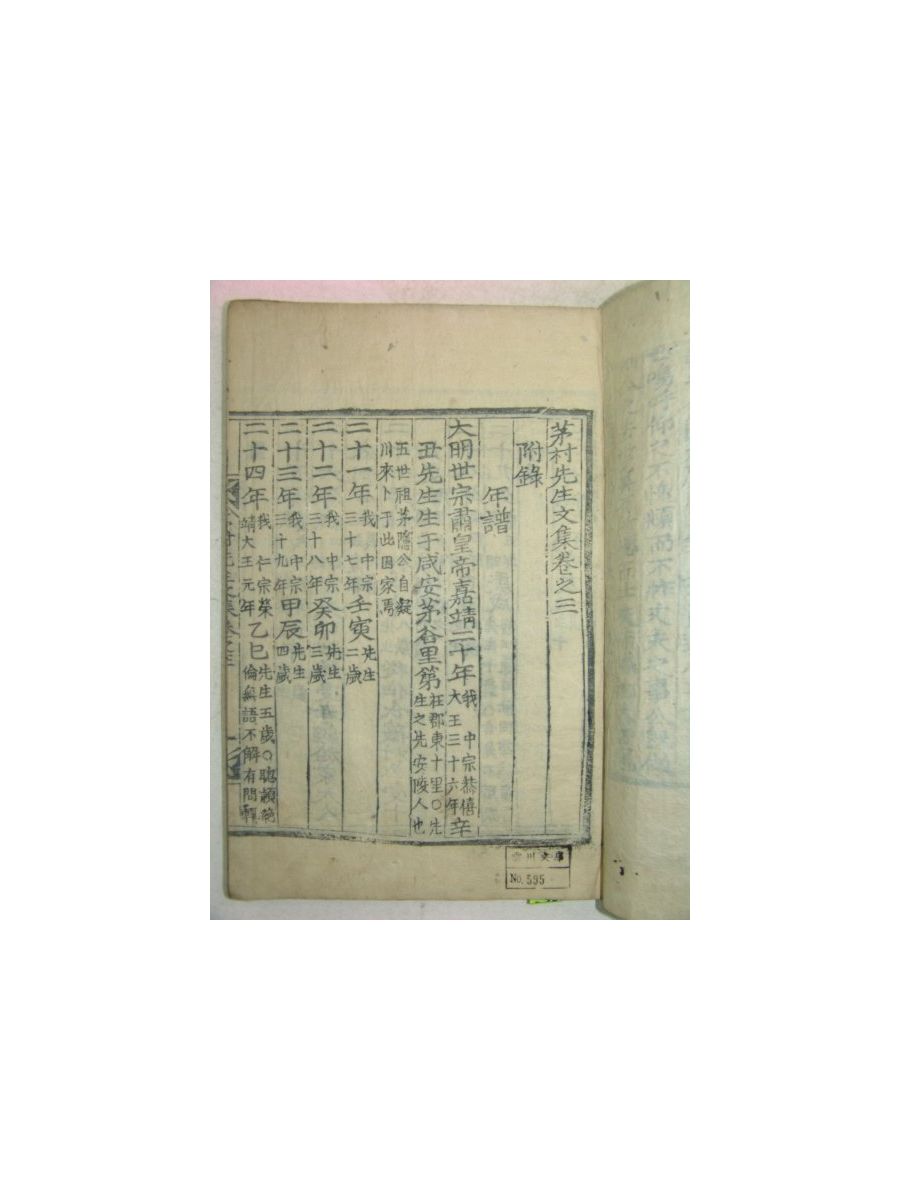 茅村先生文集卷之三
附錄
年譜
大明世宗肅皇帝嘉靖二十年我 中宗恭僖大王三十六年辛
丑先生生于咸安茅谷里第在郡東十里○先生之先安陵人也
五世祖茅隱公自凝川來卜于此因家焉
二十一年我 中宗三十七年壬寅先生二歲
二十二年我 中宗三十八年癸卯先生三歲
二十三年我 中宗三十九年甲辰先生四歲
二十四年我 仁宗榮靖大王元年乙巳先生五歲○聰穎絶倫無語不解有問輒
文庫
No. 595